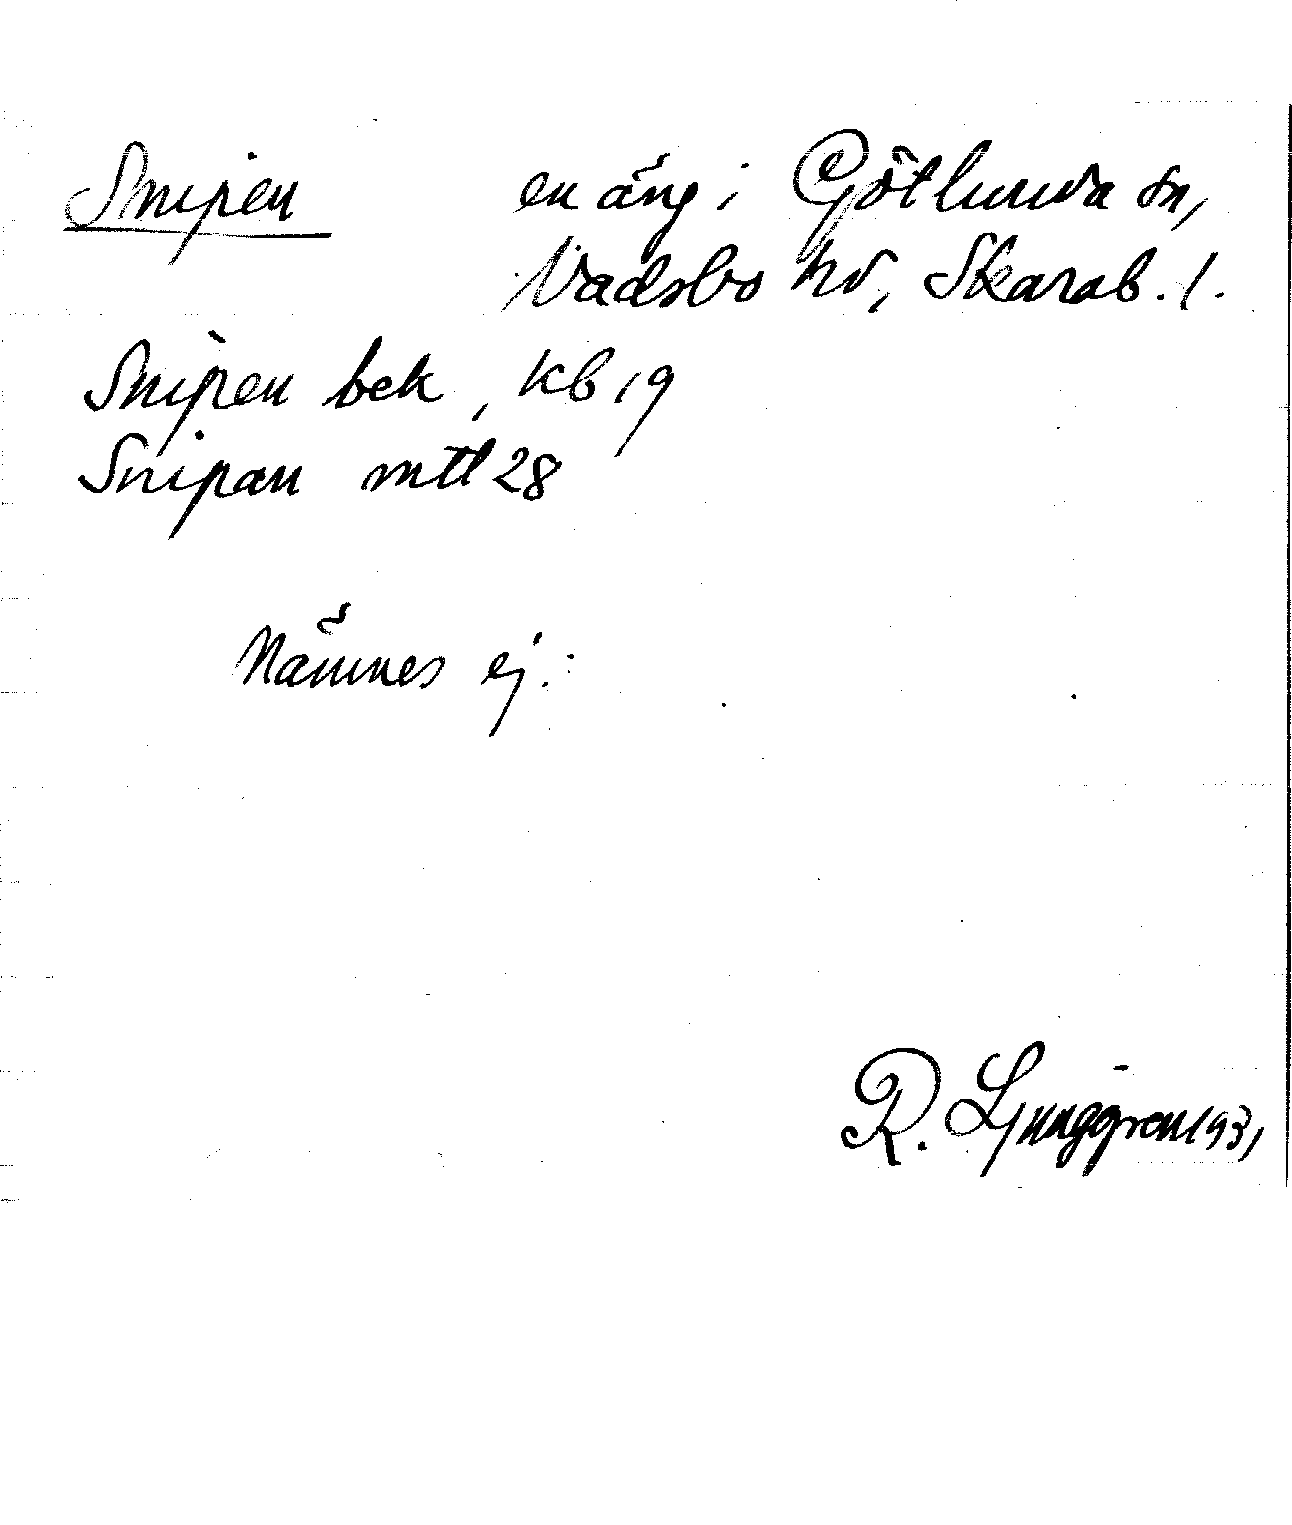 Snipen en äng i Götlunda sn,
Vadsbo hd, Skarab. l.
Snipen bek, kb 19
Snipan mtl 28
Nämnes ej.
R. Ljunggren 1931